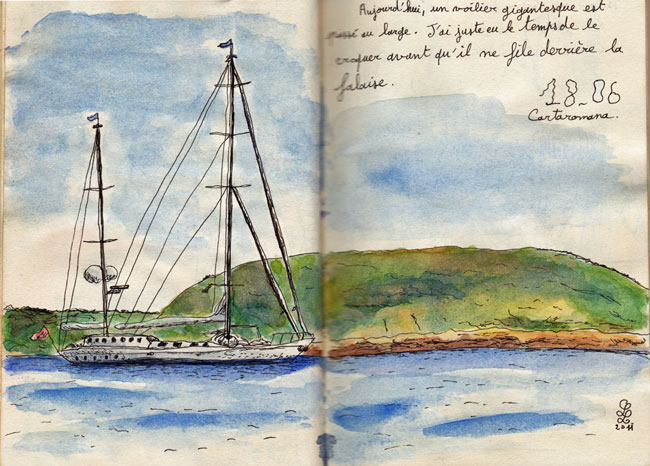 Aujourd'hui, un voilier gigantesque est
passé au large. J'ai juste eu le temps de le
croquer avant qu'il ne file derrière la
falaise.
18_06
Cartaromana.
2011